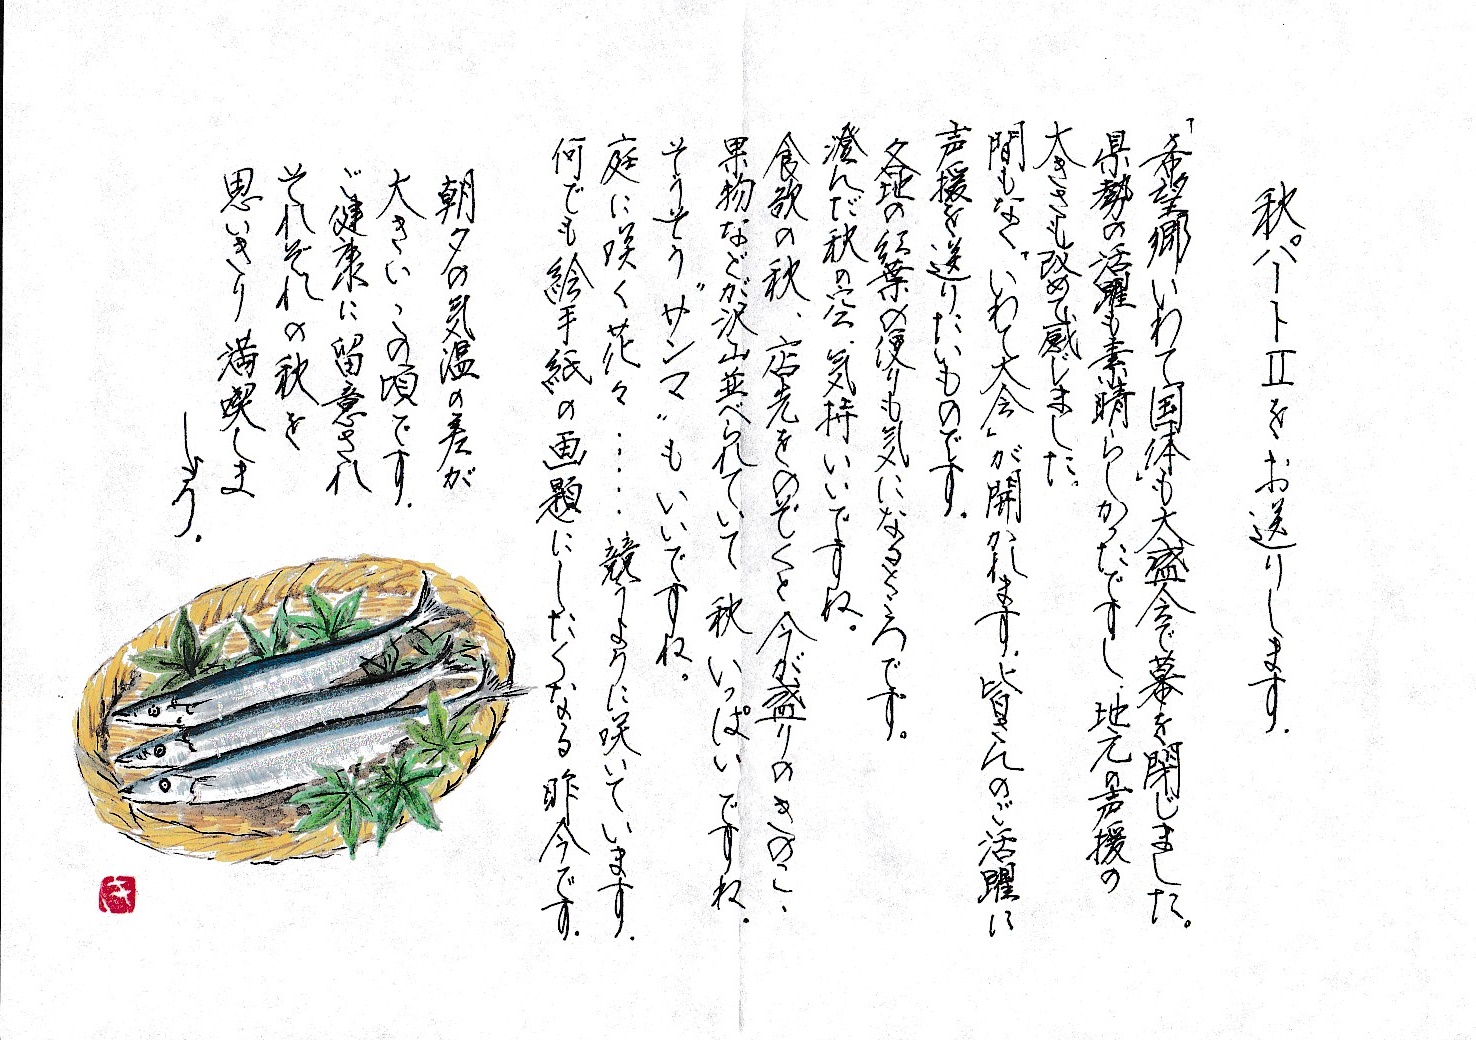 秋パートⅡをお送りします.
「希望郷いわて国体」も大盛会で幕を閉じました。
県勢の活躍も素晴らしかったですし、地元の声援の
大きさも改めて感じました.
間もなく「いわて大会」が開かれます.皆さんのご活躍に
声援を送りたいものです.
各地の紅葉の便りも気になるところです.
澄んだ秋の空、気持いいですね.
食欲の秋、店先をのぞくと今が盛りのきのこ、
果物などが沢山並べられていて秋いっぱいですね.
そうそう〝サンマ〟もいいですね.
庭に咲く花々‥‥競うように咲いています.
何でも絵手紙の画題にしたくなる昨今です.
朝夕の気温の差が
大きいこの頃です.
ご健康に留意され
それぞれの秋を
思いきり満喫しま
しょう.